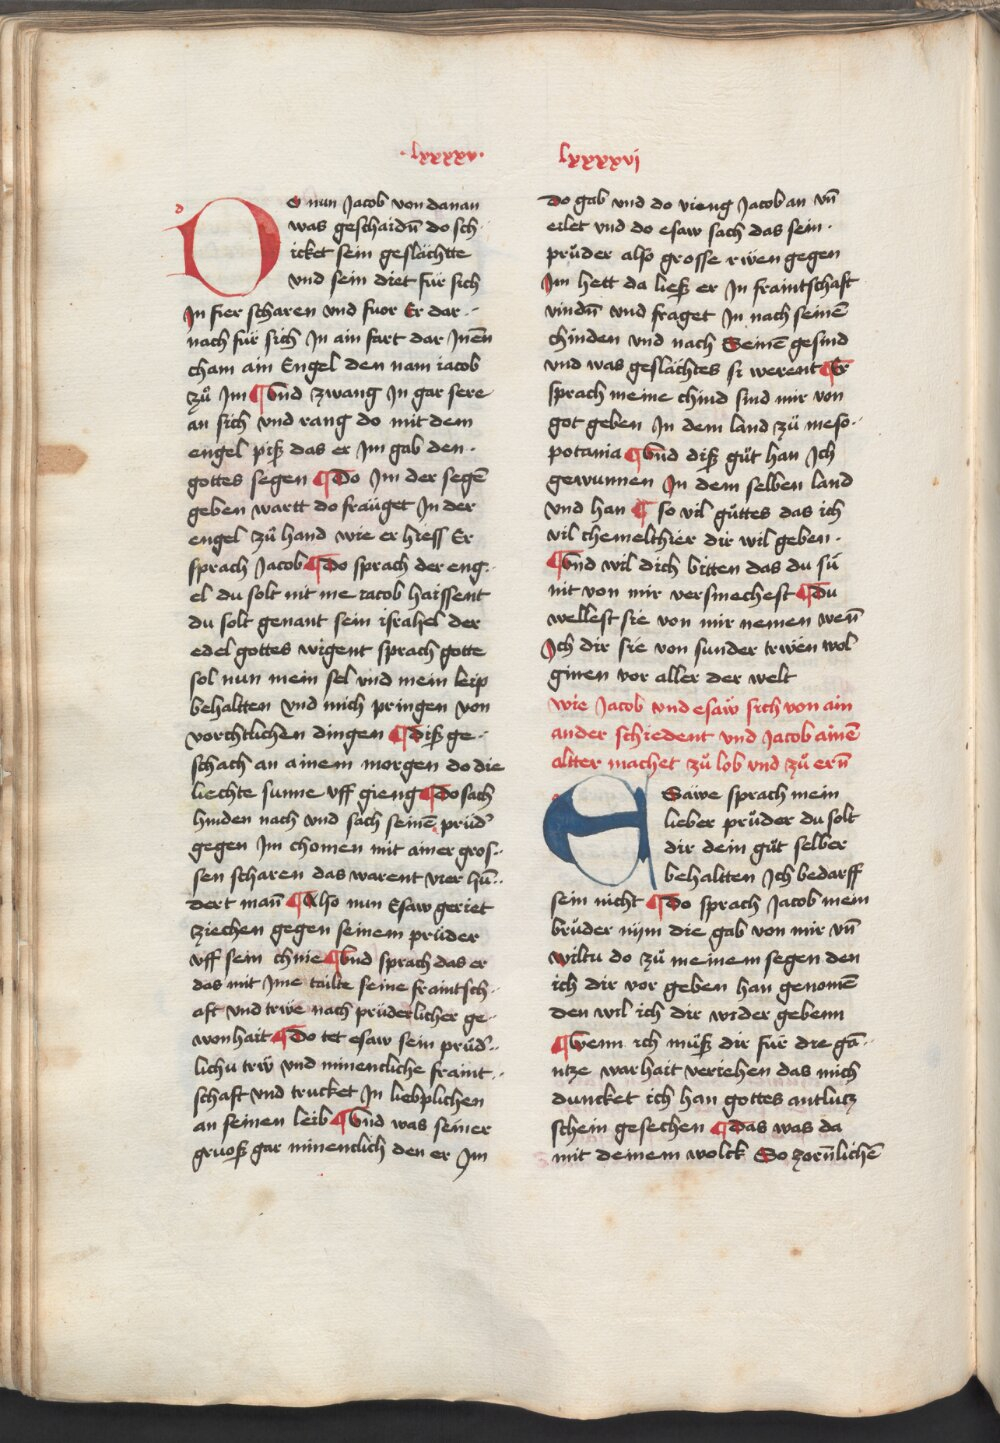 ·lxxxxv·
DO nun Jacob von danan
was geschaidn̄ do sch
icket sein geslächtte
vnd sein diet für sich
Jn fier scharen vnd fuor Er dar
nach für sich Jn ain fart dar Jnēn
cham ain Engel den nam iacob
zů Jm ¶ Vnd zwang Jn gar sere
an sich vnd rang do mit dem
engel piß das er Jm gab den
gottes segen ¶ Do Jm der segē
geben wartt do fräuget Jn der
engel zů hand wie er hiess Er
sprach Jacob ¶ Do sprach der eng
el du solt nit me iacob haissent
du solt genant sein israhel der
edel gottes wigent sprach gotte
sol nun mein sel vnd mein leip
behaltten vnd mich pringen von
vorchtlichen dingen ¶ Diß ge
schach an ainem morgen do die
liechte sunne vff gieng ¶ Do sach
hinden nach vnd sach seinē prüd᷑
gegen Jm chomen mit ainer gros
sen scharen das warent vier hū
dert man̄ ¶ Also nun Esaw geriet
ziechen gegen seinem prüder
vff sein chnie ¶ Vnd sprach das er
das mit Jme tailte seine fraintsch
aft vnd trwë nach prüderlicher ge
wonhait ¶ Do tet esaw sein prüd᷑
lichu trẅ vnd minencliche fraint
schaft vnd trucket Jn lieplichen
an seinen leib ¶ Vnd was seiner
gruoß gar minenclich den er Jm
lxxxxvi
Do gab vnd do vieng Jacob an vn̄
eilet vnd do esaw sach das sein
prüder also grosse rwen gegen
Jm hett da ließ er Jn fraintschaft
vindn̄ vnd fraget Jn nach seinē
chinden vnd nach Seinē gesind
vnd was geslächtes si werent ¶ Er
sprach meine chind sind mir von
got geben Jn dem land zů meso
potania ¶ Vnd diß gůt han Jch
gewunnen Jn dem selben land
vnd han ¶ so vil gůttes das ich
vil chemelthier dir wil geben
¶ Vnd wil dich bitten das du sü
nit von mir versmechest ¶ Du
wellest sie von mir nemen wen̄
Jch dir sie von sunder trwën wol
ginen vor aller der welt
wie Jacob vnd esaẅ sich von ain
ander schiedent vnd Jacob ainē
altter machet zů lob vnd zů ern̄
ESäwe sprach mein
lieber prüder du solt
dir dein gůt selber
behaltten Jch bedarff
sein nicht ¶ Do sprach Jacob mein
brüder nÿm die gab von mir vn̄
wiltu do zů meinem segen den
ich dir vor geben han genomē
den wil ich dir wider gebenn
¶ Wenn ich můß dir für die gā
ntze warhait veriehen das mich
duncket ich han gottes antlutz
schein gesechen ¶ Das was da
mit deinem wolck So zorn̄lichē